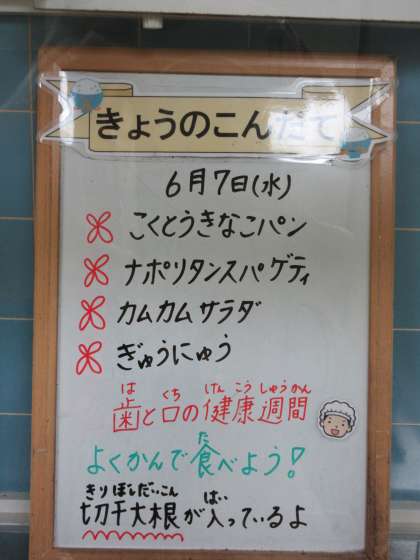 きょうのこんだて
6月7日(水)
こくとうきなこパン
ナポリタンスパゲティ
カムカムサラダ
ぎゅうにゅう
は くち けん こう しゅうかん
歯と口の健康週間
た
よくかんで食べよう!
きりぼしだいこん はい
切干大根が入っているよ